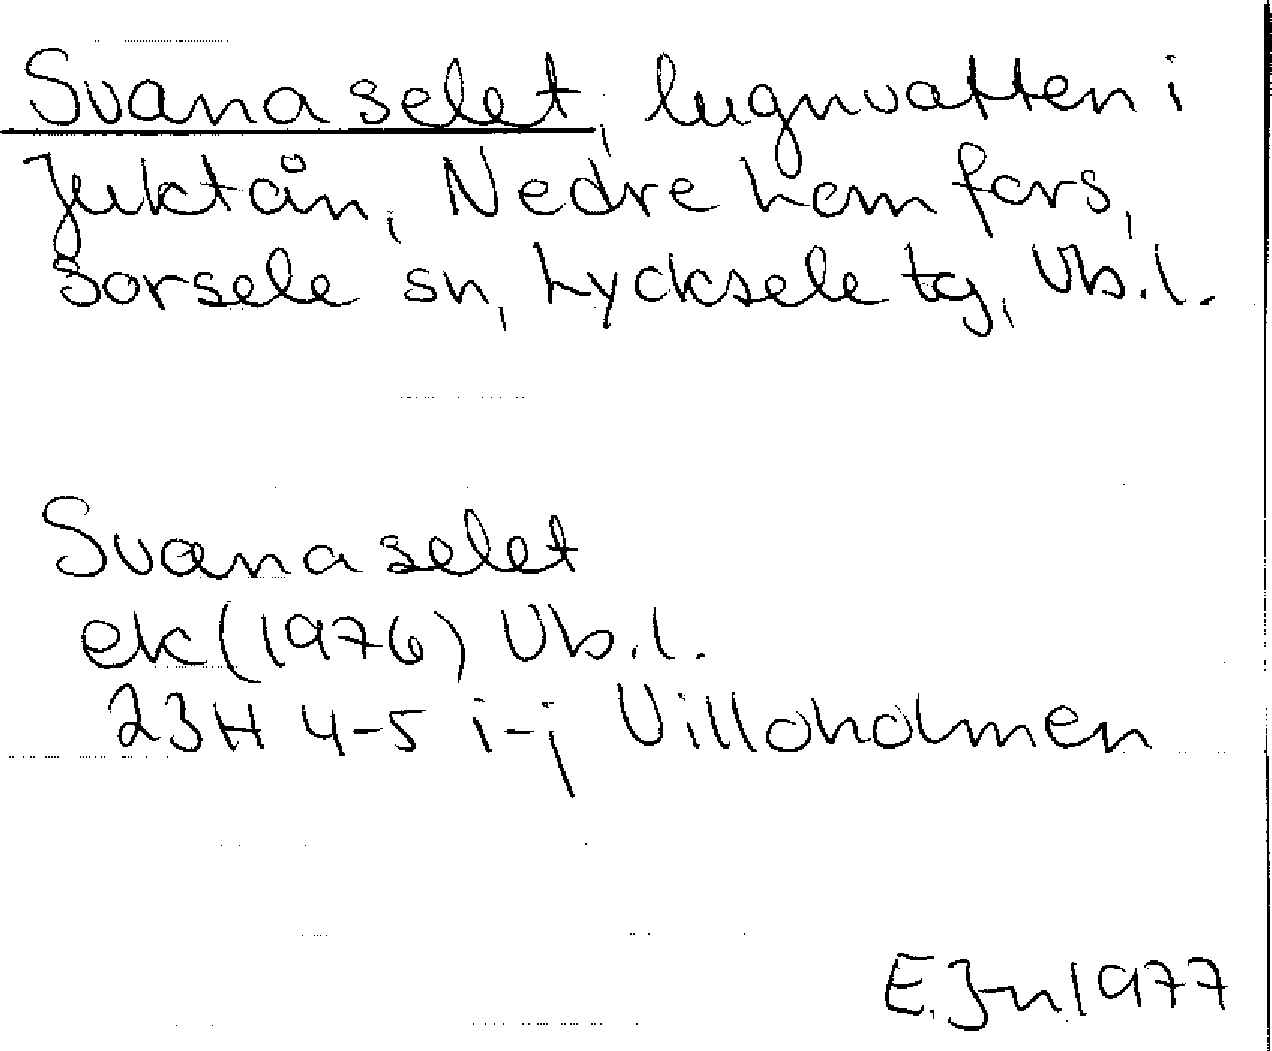 Svanaselet, lugnvatten i
Juktån, Nedre ham fors,
Sorsele sn, Lycksele tg, Vb.l.
Svanaselet
ek (1976) Vb.l.
23H 4-5 i-j Villoholmen
E.Jn 1977